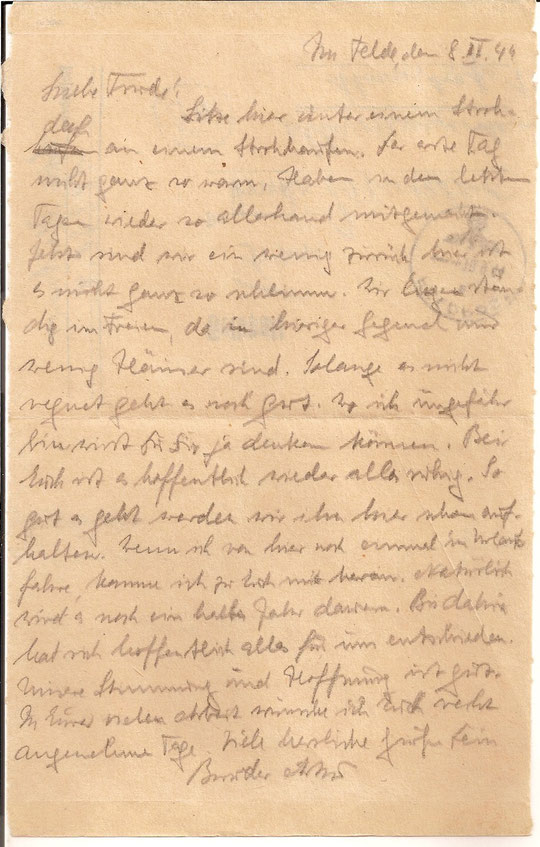 Im Felde, den 8. II. 44
Liebe Trude!
Sitze hier unter einem Stroh-
dach
an einem Strohhaufen. Der erste Tag
nicht ganz so warm, Haben in den letzten
Tagen wieder so allerhand mitgemacht.
Jetzt sind wir ein wenig zurück hier ist
es nicht ganz so schlimm. Wir liegen stän-
dig im Freien, da in hiesiger Gegend nur
wenig Häuser sind. Solange es nicht
regnet geht es noch gut. Wo ich ungefähr
bin wirst Du Dir ja denken können. Bei
Euch ist es hoffentlich wieder alles ruhig. So
gut es geht werden wir ihn hier schon auf-
halten. Wenn ich von hier noch einmal in Urlaub
fahre, komme ich zu Euch mit heran. Natürlich
wird es noch ein halbes Jahr dauern. Bis dahin
hat sich hoffentlich alles für uns entschieden.
Unsere Stimmung und Hoffnung ist gut.
In Eurer vielen Arbeit wünsche ich Euch recht
angenehme Tage. Viele herzliche Grüße Dein
Bruder